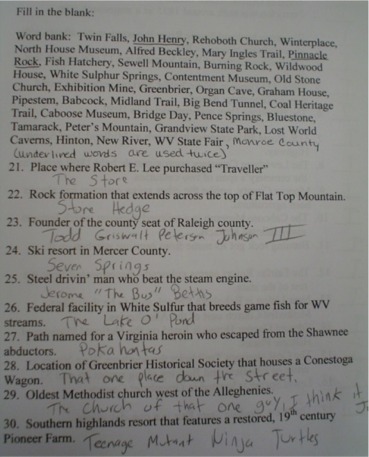 Fill in the blank:
Word bank: Twin Falls, John Henry, Rehoboth Church, Winterplace,
North House Museum, Alfred Beckley, Mary Ingles Trail, Pinnacle
Rock, Fish Hatchery, Sewell Mountain, Burning Rock, Wildwood
House, White Sulphur Springs, Contentment Museum, Old Stone
Church, Exhibition Mine, Greenbrier, Organ Cave, Graham House,
Pipestem, Babcock, Midland Trail, Big Bend Tunnel, Coal Heritage
Trail, Caboose Museum, Bridge Day, Pence Springs, Bluestone,
Tamarack, Peter's Mountain, Grandview State Park, Lost World
Caverns, Hinton, New River, WV State Fair, Monroe County
(underlined words are used twice)
21. Place where Robert E. Lee purchased "Traveller"
The Store
22. Rock formation that extends across the top of Flat Top Mountain.
Stone Hedge
23. Founder of the county seat of Raleigh county.
Todd Griswalt Peterson Johnson III
24. Ski resort in Mercer County.
Seven Springs
25. Steel drivin' man who beat the steam engine.
Jerome "The Bus" Bettis
26. Federal facility in White Sulfur that breeds game fish for WV
streams. The Lake O' Pond
27. Path named for a Virginia heroin who escaped from the Shawnee
abductors. Pokahontas
28. Location of Greenbrier Historical Society that houses a Conestoga
Wagon. That one place down the street.
29. Oldest Methodist church west of the Alleghenies.
The church of that one guy, I think it
30. Southern highlands resort that features a restored, 19th century
Pioneer Farm. Teenage Mutant Ninja Turtles